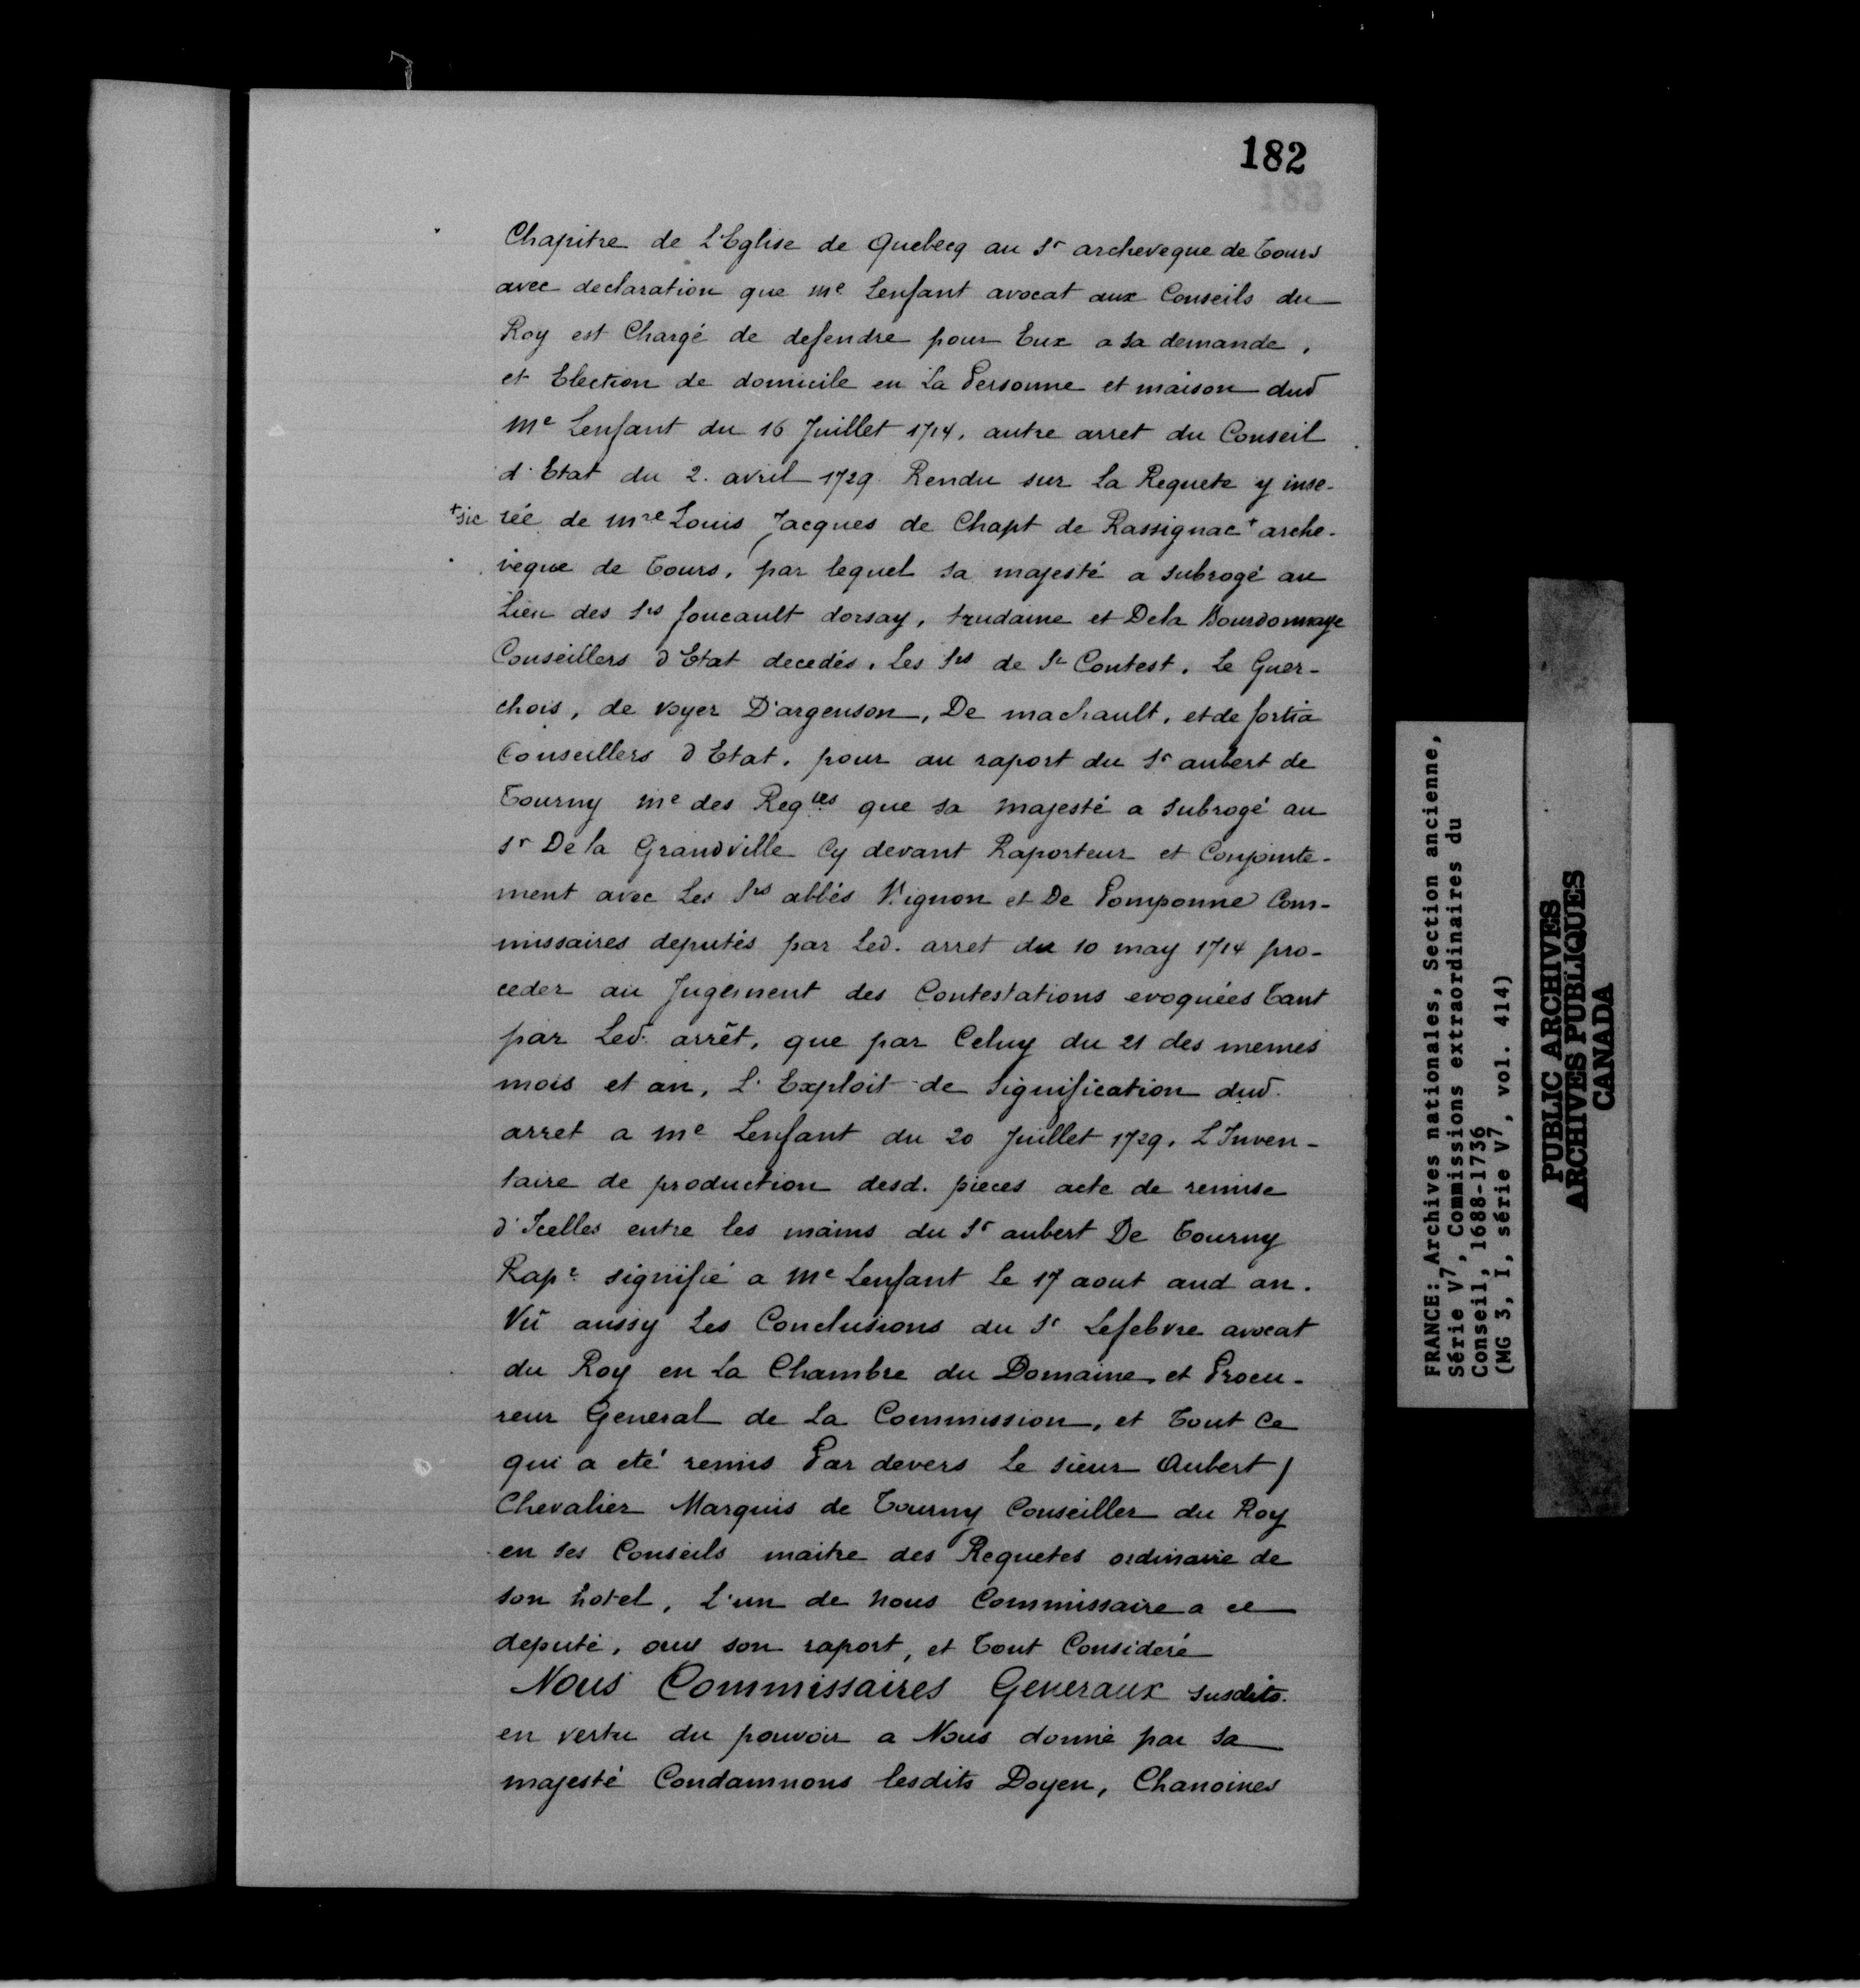 182
Chapitre de L'Eglise de Quebecq au Sr archeveque de Tours
avec declaration que me Lenfant avocat aux Conseils du
Roy est Chargé de defendre pour Eux a sa demande,
et Election de domicile en La Personne et maison dud
Me Lenfant du 16 Juillet 1714. autre arret du Conseil
d'Etat du 2. avril 1729 Rendu sur La Requete y inse-
+sic rée de mre Louis Jacques de Chapt de Rassignac+ arche-
vêque de Tours, par lequel sa majesté a subrogé au
Lieu des Srs foucault dorsay, trudaine et Dela Bourdonnaye
Conseillers d'Etat decedés, Les Srs de St Contest, Le Guer-
chois, de voyer D'argenson, De machault, et de fortia
Conseillers d'Etat, pour au raport du Sr aubert de
Tourny me des Reqtes que sa majesté a subrogé au
sr De la Grandville Cy devant Raporteur et Conjointe-
ment avec Les Srs abbés Vignon et De Pomponne Com-
missaires deputés par Led. arret du 10 may 1714 pro-
ceder au Jugement des Contestations evoquées Tant
par Led. arrêt, que par Celuy du 21 des memes
mois et an, L'Exploit de Signification dud.
arret a me Lenfant du 20 Juillet 1729, L'Inven-
taire de production desd. pieces acte de remise
d'Icelles entre les mains du Sr aubert De Tourny
Rapr signifié a Me Lenfant Le 17 aout aud an.
Vû aussy Les Conclusions du Sr Lefebvre avocat
du Roy en La Chambre du Domaine et Procu-
reur General de La Commission, et Tout Ce
qui a eté remis Par devers Le sieur Aubert
Chevalier Marquis de Tourny Conseiller du Roy
en ses Conseils maitre des Requetes ordinaire de
son hotel, L'un de nous Commissaire a ce
deputé, oui son raport, et Tout Consideré
Nous Commissaires Generaux susdits.
en vertu du pouvoir a Nous donné par sa
majesté Condamnons lesdits Doyen, Chanoines
FRANCE: Archives nationales, Section ancienne,
Série V7, Commissions extraordinaires du
Conseil, 1688-1736
(MG 3, I, série V7, vol. 414)
PUBLIC ARCHIVES
ARCHIVES PUBLIQUES
CANADA